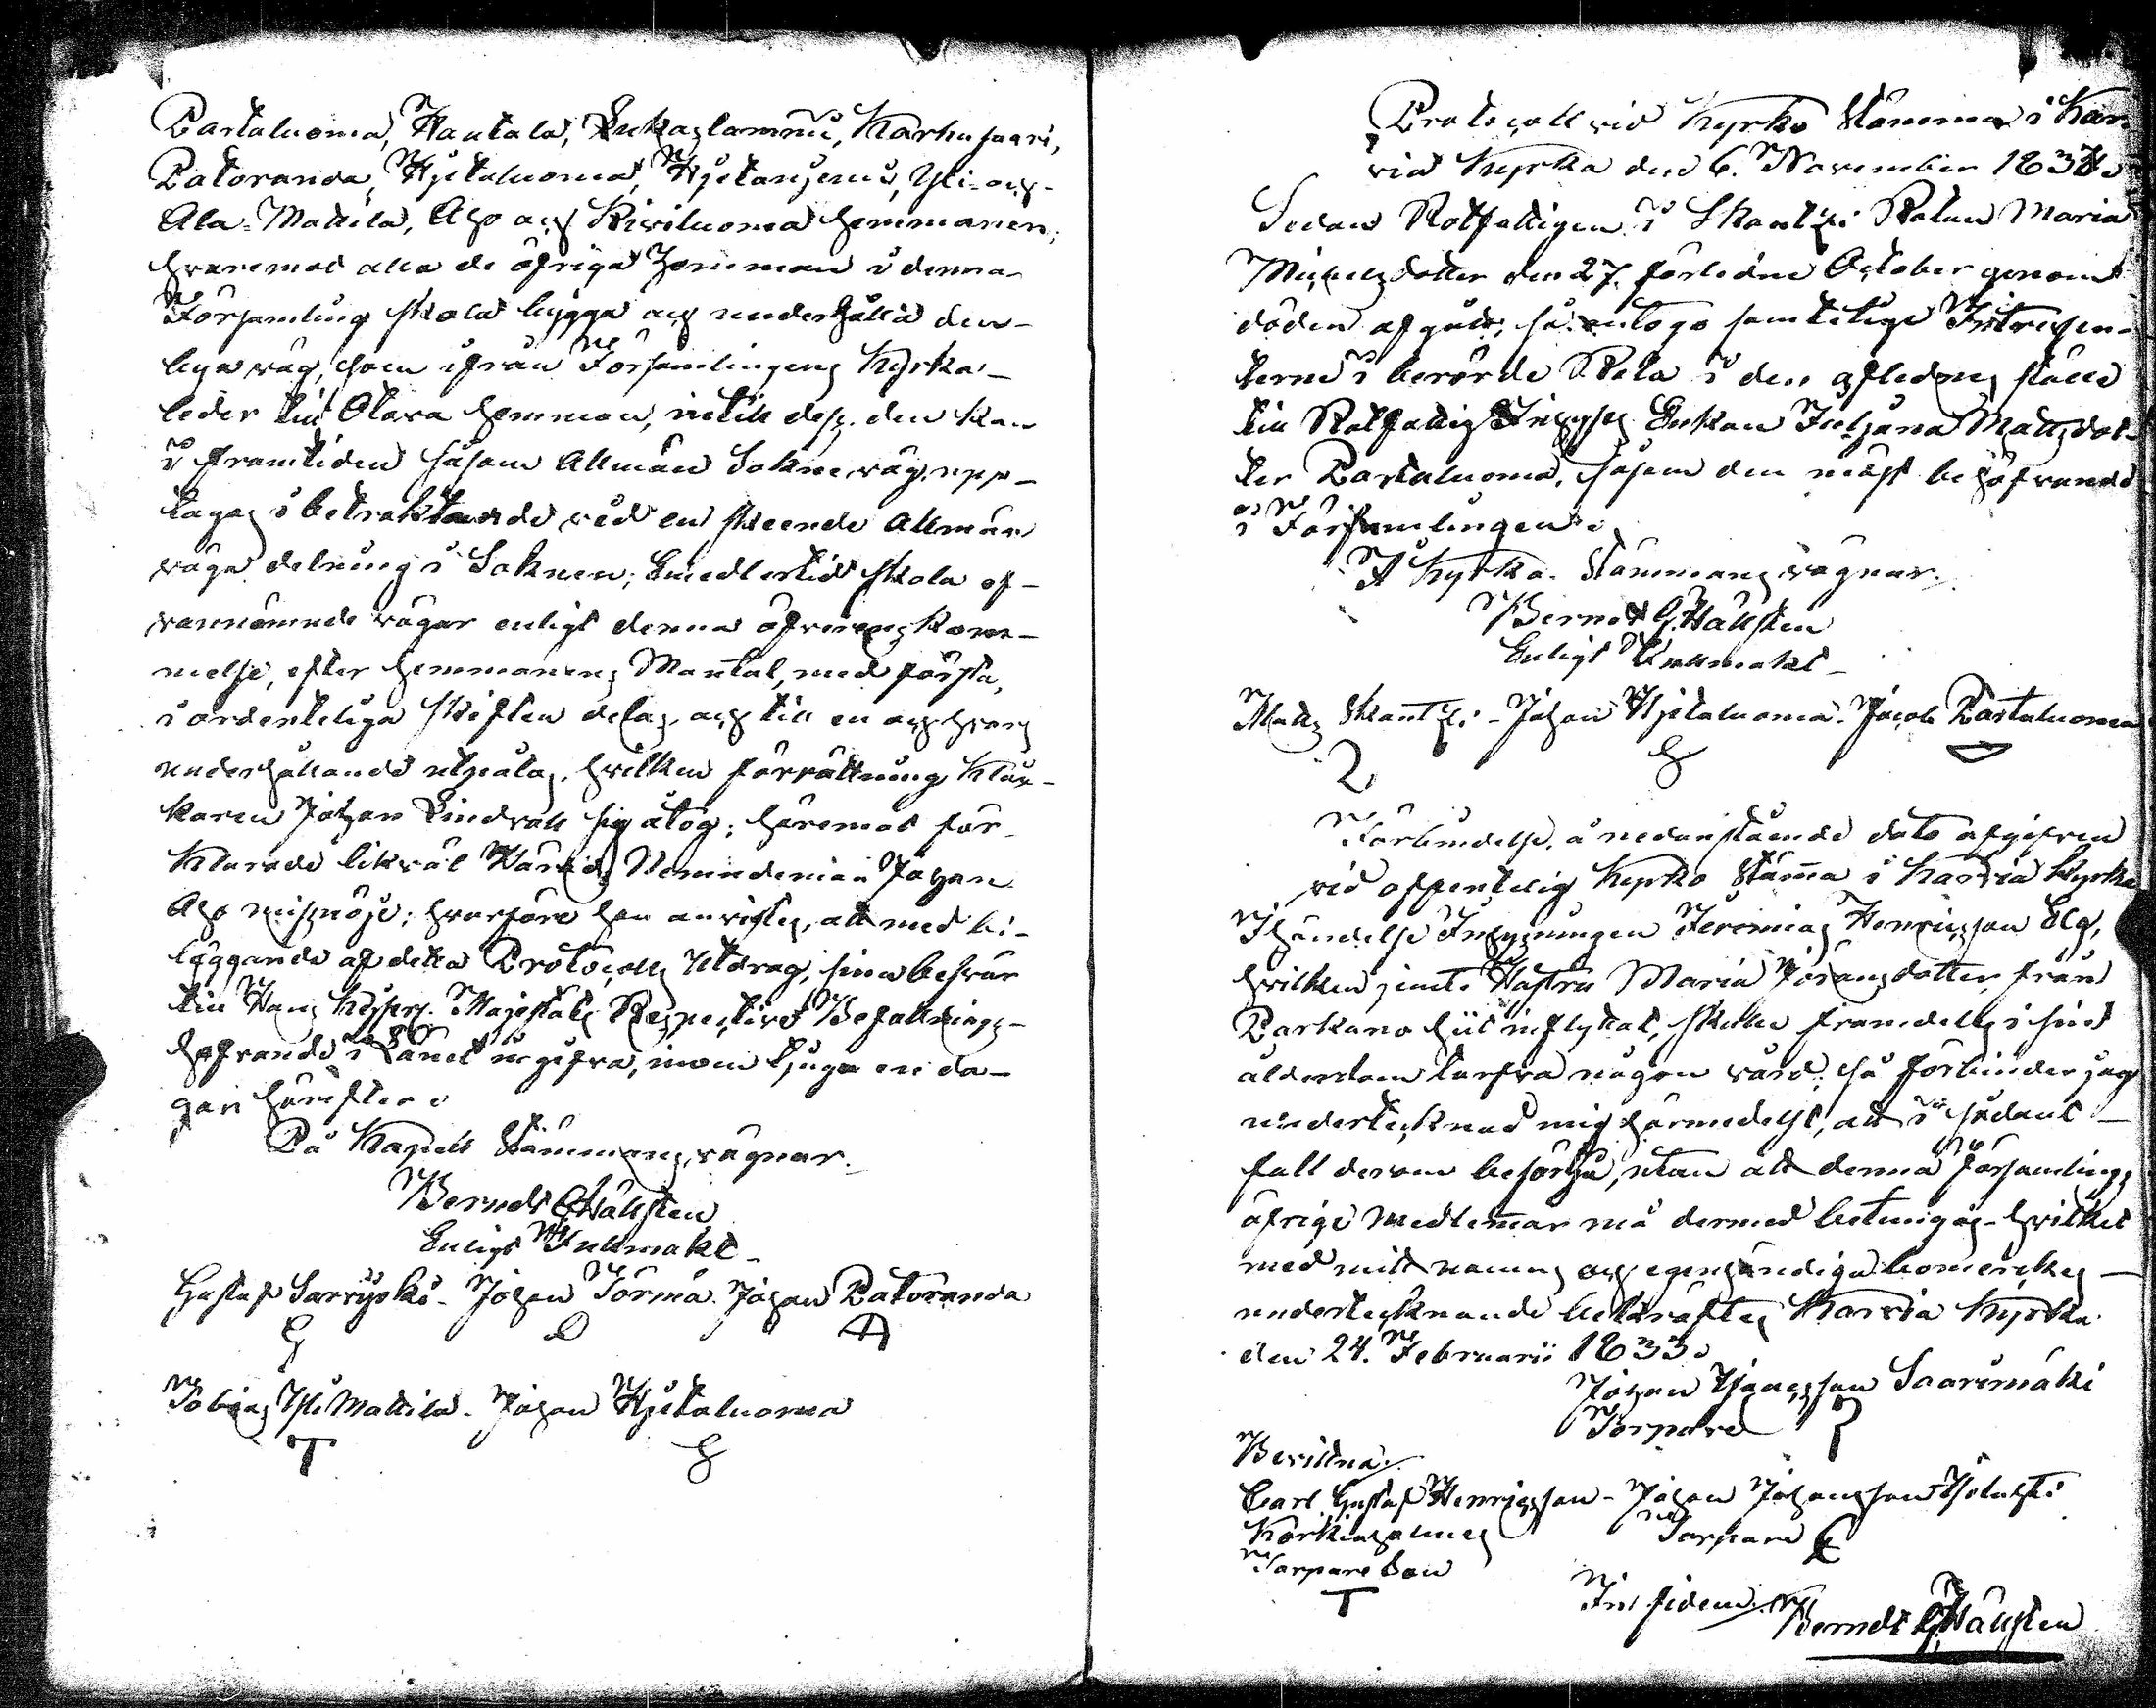 Rastaluoma, Hautala, Lukaslammi, Karhusaari,
Patoranda, Hjetaluoma, Hjetanjemi, Yli- och
Ala-Mattila, Aho och Kiviluoma hemmanen;
hvaremot alla de öfriga Hemman i denna
Församling skola bygga och underhålla den
bya väg, som ifrån Församlingens Kyrka
leder till Otava hemman, intill dess den kan
i framtiden såsom Allmän Sokne väg upp-
tagas i betraktande vid en skeende Allmän
väga delning i Soknen; Emedlertid skola of-
vannämnde vägar enligt denna öfverenskom-
melse, efter hemmanens Mantal, med första,
i ordenteliga skiften delas och till en och hvars
underhållande utpålas, hvilken förrättning Kloc-
karen Johan Lindvall sig åtog; häremot för-
klarade likväl Härads Nämndeman Johan
Aho missnöje; hvarföre han anvistes, att med bi-
läggande af detta Protocolls Utdrag, sina besvär
till Hans Kejserl. Majestäts Respective Befallnings-
hafvande i Länet ingifva, inom tjugu en da-
gar härefter.
På Kapell Stämmans vägnar.
Berndt G. Hällsten
Enligt Fullmakt
Gustaf Sarvijoki - Johan Törmä. Johan Patoranda
G D A
Tobias Yli Mattila. Johan Hjetaluoma
T H
Protocoll vid Kyrko Stämma i Kar-
via Kyrka den 6. November 1832.
Sedan Rotfattigen i Skantzi Rotan Maria
Michelsdotter den 27. förledne October genom
döden afgådt, så antogo samtelige Intressen-
terne i berörde Rota i den aflednes ställe
till Rotfattig Inhyses Enkan Juljana Mattsdot-
ter Rastaluoma, såsom den mäst behöfvande
i Församlingen.
På Kyrko Stämmans vägnar.
Berndt G. Hällsten
Enligt Fullmakt
Matts Skantzi - Johan Hjetaluoma. Jacob Rastaluoma
H
Förbindelse, å nedanstående dato afgifven
vid offentelig Kyrko Stämma i Karvia Kyrka
I händelse Inhysningen Jeremias Henricsson Elg,
hvilken jemte Hustru Maria Göransdotter från
Parkano hit inflyttat, skulle framdeles i sin
ålderdom tarfva någon vård, så förbinder jag
undertecknad mig härmedelst, att i sådant
fall derom besörja, utan att denna Församlings
öfrige Medlemmar må dermed betungas, hvilket
med mitt namns och egenhändiga bomärkes
undertecknande bekräftas Karvia Kyrka
den 24. Februarii 1833.
Johan Hansson Saarimäki
Torpare
Bevittna.
Carl Gustaf Henricsson - Johan Johansson
Torpare
Torpare Son
T
In fidem. Berndt G. Hällsten